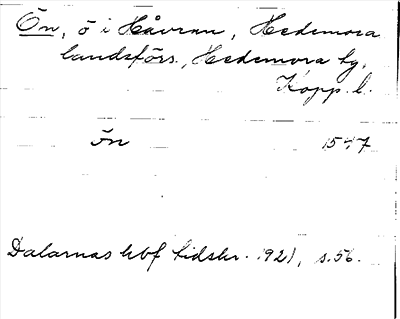 Ön, ö i Håvran, Hedemora
landsförs., Hedemora hg,
Kopp. l.
ön 1547
Dalarnas hbf tidskr. 1921, s. 56.